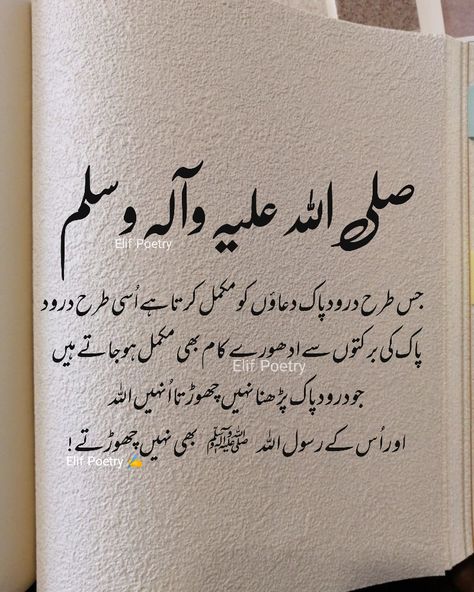 صلی اللہ علیہ وآلہ وسلم
Elif Poetry
جس طرح درود پاک دعاؤں کو مکمل کرتا ہے اُسی طرح درود
پاک کی برکتوں سے ادھورے کام بھی مکمل ہو جاتے ہیں
Elif Poetry
جو درود پاک پڑھنا نہیں چھوڑتا اُنہیں اللہ
اور اُس کے رسول اللہ ﷺ بھی نہیں چھوڑتے !
Elif Poetry ✍️